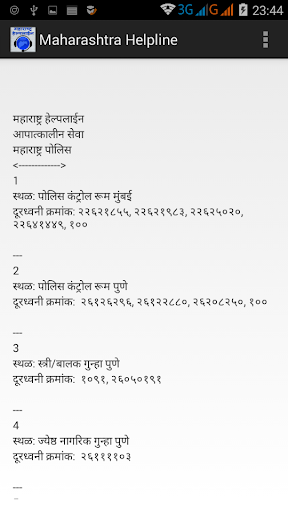 3G G 23:44
महाराष्ट्र
हेल्पलाईन
Maharashtra Helpline
महाराष्ट्र हेल्पलाईन
आपात्कालीन सेवा
महाराष्ट्र पोलिस
<------------->
1
स्थळ: पोलिस कंट्रोल रूम मुंबई
दूरध्वनी क्रमांक: २२६२१८५५, २२६२१९८३, २२६२५०२०,
२२६४१४४९, १००
---
2
स्थळ: पोलिस कंट्रोल रूम पुणे
दूरध्वनी क्रमांक: २६१२६२९६, २६१२२८८०, २६२०८२५०, १००
---
3
स्थळ: स्त्री/बालक गुन्हा पुणे
दूरध्वनी क्रमांक: १०९१, २६०५०१९१
---
4
स्थळ: ज्येष्ठ नागरिक गुन्हा पुणे
दूरध्वनी क्रमांक: २६११११०३
---